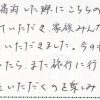 満治した際にこちらの
ていただき、家族みんて
いただきました。今の
たら、また旅行に行
をいただくのを楽しみ